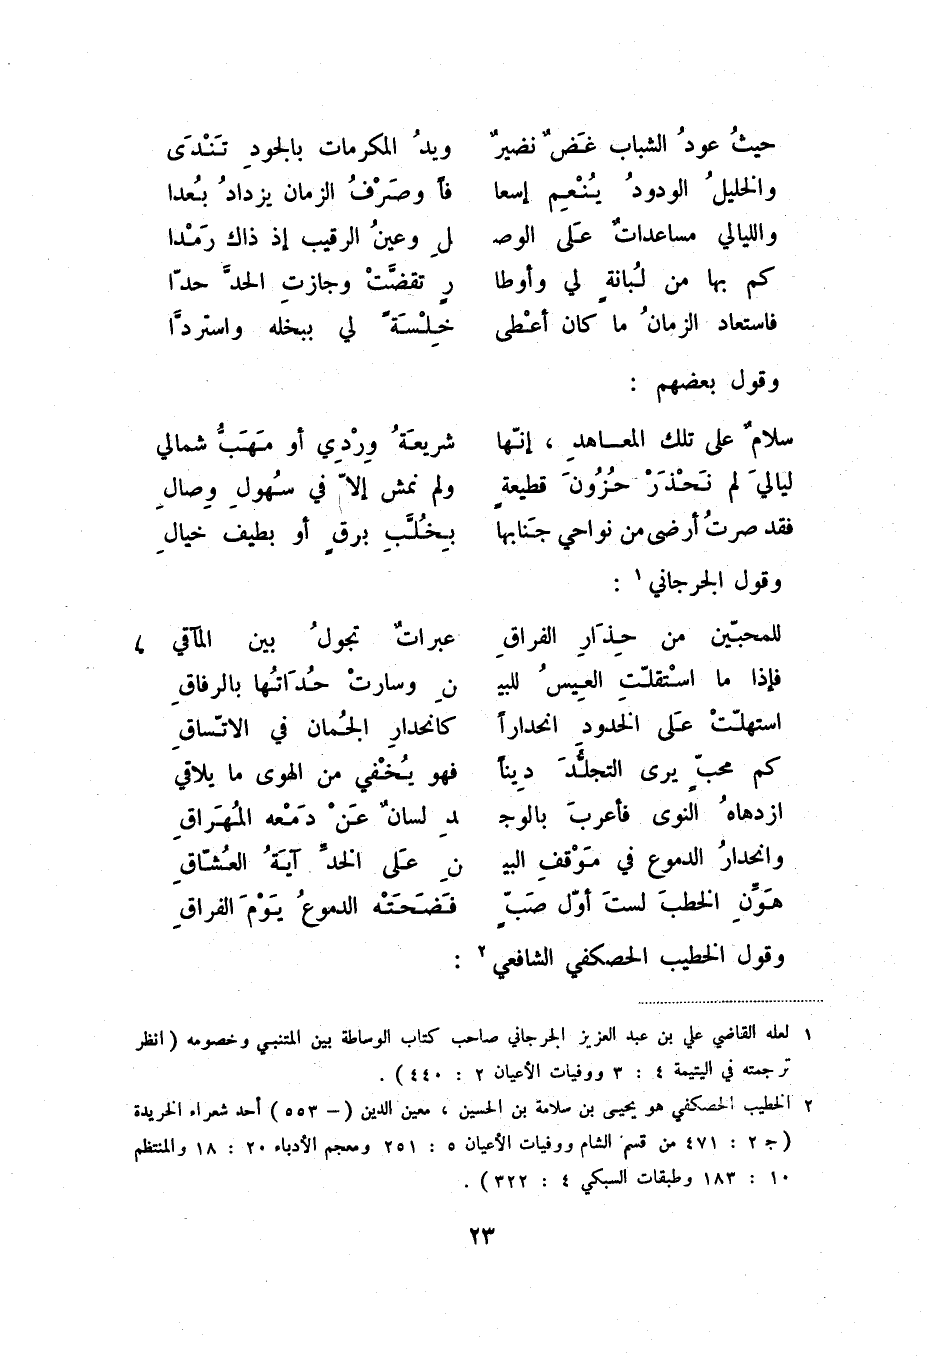 حيثُ عودُ الشباب غَضٌ نضيرٌ ويدُ المكرمات بالجودِ تَنْدَى
والخليلُ الودودُ يُنْعِم إسعا فاً وصَرْفُ الزمان يزدادُ بُعدا
والليالي مساعداتٌ عَلَى الوصـ لِ وعينُ الرقيب إذ ذاك رَمْدا
كم بها من لُبانةٍ لي وأوطا رٍ تقضَّتْ وجازتِ الحدَّ حدّا
فاستعاد الزمانُ ما كان أعْطى خِلْسَةً لي ببخله واستردَّا
وقول بعضهم :
سلامٌ على تلك المعاهدِ ، إنّها شريعَةُ وِرْدِي أو مَهَبُّ شمالي
لياليَ لم نَحْذَرْ حُزُونَ قطيعةٍ ولم نمش إلاّ في سُهولِ وِصالِ
فقد صرتُ أرضى من نواحي جنَابها بِخُلَّبِ برقٍ أو بطيف خيالِ
وقول الجرجاني ١ :
للمحبّين من حِذَارِ الفراقِ عبراتٌ تجولُ بين المآقي
فإذا ما اسْتقلّتِ العِيسُ للبيـ نِ وسارتْ حُدَاتُها بالرفاقِ
استهلّتْ عَلَى الخدودِ انحداراً كانحدارِ الجُمان في الاتّساقِ
كم محبٍّ يرى التجلُّدَ ديناً فهو يُخْفي من الهوى ما يلاقي
ازدهاهُ النوى فأعربَ بالوجـ دِ لسانٌ عَنْ دَمْعه المُهَراقِ
وانحدارُ الدموع في مَوْقفِ البيـ نِ عَلَى الخدَّ آيَةُ العُشّاقِ
هَوِّنِ الخطبَ لستَ أوّل صَبٍّ فَضَحَتْه الدموعُ يَوْمَ الفراقِ
وقول الخطيب الحصكفي الشافعي ٢ :
١ لعله القاضي علي بن عبد العزيز الجرجاني صاحب كتاب الوساطة بين المتنبي وخصومه ( انظر
ترجمته في اليتيمة ٤ : ٣ ووفيات الأعيان ٢ : ٤٤٠ ) .
٢ الخطيب الحصكفي هو يحيى بن سلامة بن الحسين ، معين الدين ( – ٥٥٣ ) أحد شعراء الخريدة
( ج ٢ : ٤٧١ من قسم الشام ووفيات الأعيان ٥ : ٢٥١ ومعجم الأدباء ٢٠ : ١٨ والمنتظم
١٠ : ١٨٣ وطبقات السبكي ٤ : ٣٢٢ ) .
٢٣